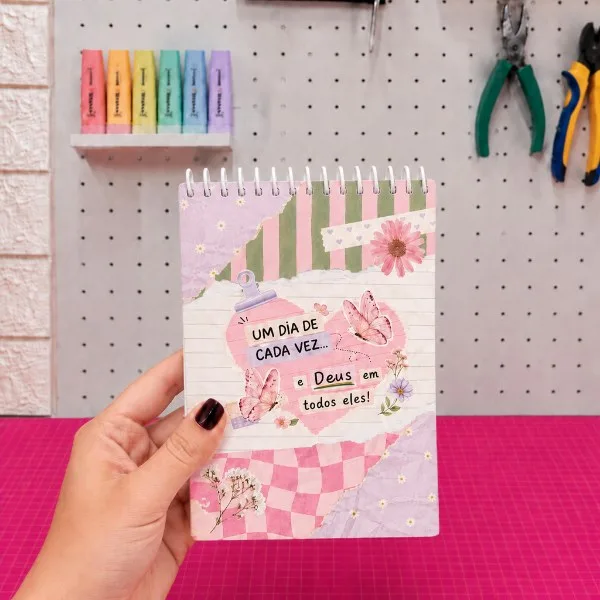 UM DIA DE
CADA VEZ...
e Deus em
todos eles!